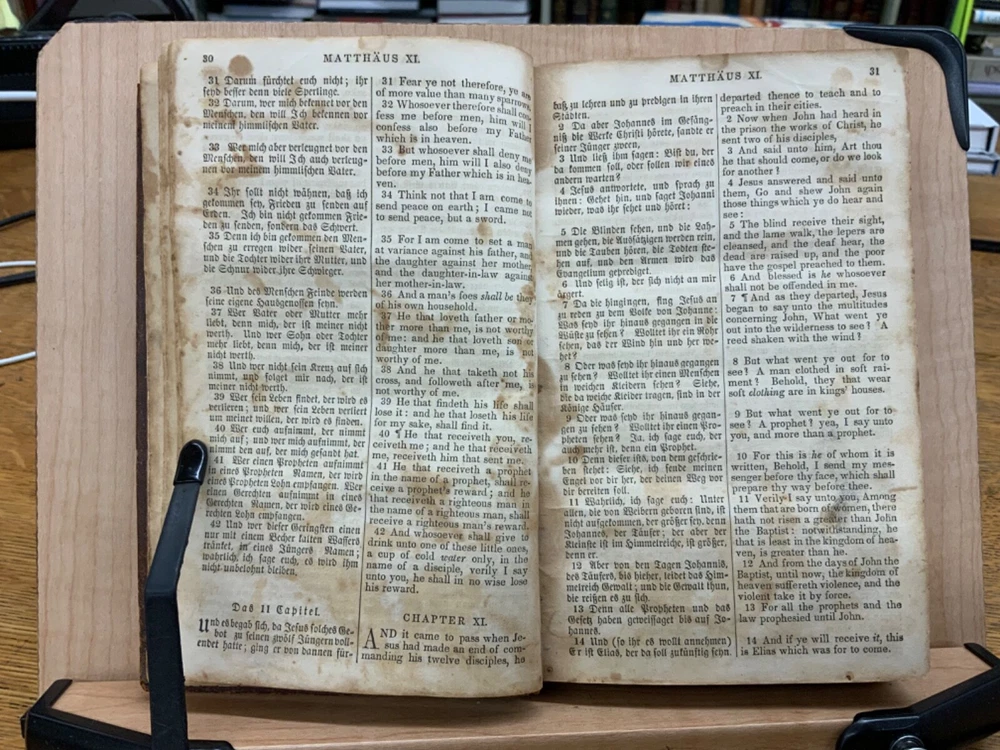 30
MATTHÄUS XI.
31 Darum fürchtet euch nicht; ihr
seyd besser denn viele Sperlinge.
32 Darum, wer mich bekennet vor den
Menschen, den will Ich bekennen vor
meinem himmlischen Vater.
33 Wer mich aber verleugnet vor den
Menschen, den will Ich auch verleug-
nen vor meinem himmlischen Vater.
34 Ihr sollt nicht wähnen, daß ich
gekommen sey, Frieden zu senden auf
Erden. Ich bin nicht gekommen Frie-
den zu senden, sondern das Schwert.
35 Denn ich bin gekommen den Men-
schen zu erregen wider seinen Vater,
und die Tochter wider ihre Mutter, und
die Schnur wider ihre Schwieger.
36 Und des Menschen Feinde werden
seine eigene Hausgenossen seyn.
37 Wer Vater oder Mutter mehr
liebt, denn mich, der ist meiner nicht
werth. Und wer Sohn oder Tochter
mehr liebt, denn mich, der ist meiner
nicht werth.
38 Und wer nicht sein Kreuz auf sich
nimmt, und folget mir nach, der ist
meiner nicht werth.
39 Wer sein Leben findet, der wird es
verlieren; und wer sein Leben verliert
um meinet willen, der wird es finden.
40 Wer euch aufnimmt, der nimmt
mich auf; und wer mich aufnimmt, der
nimmt den auf, der mich gesandt hat.
41 Wer einen Propheten aufnimmt
in eines Propheten Namen, der wird
eines Propheten Lohn empfangen. Wer
einen Gerechten aufnimmt in eines
Gerechten Namen, der wird eines Ge-
rechten Lohn empfangen.
42 Und wer dieser Geringsten einen
nur mit einem Becher kalten Wassers
tränket, in eines Jüngers Namen;
wahrlich, ich sage euch, es wird ihm
nicht unbelohnt bleiben.
Das 11 Capitel.
Und es begab sich, da Jesus solches Ge-
bot zu seinen zwölf Jüngern voll-
endet hatte; ging er von dannen für-
31 Fear ye not therefore, ye are
of more value than many sparrows.
32 Whosoever therefore shall con-
fess me before men, him will I
confess also before my Father
which is in heaven.
33 But whosoever shall deny me
before men, him will I also deny
before my Father which is in hea-
ven.
34 Think not that I am come to
send peace on earth; I came not
to send peace, but a sword.
35 For I am come to set a man
at variance against his father, and
the daughter against her mother,
and the daughter-in-law against
her mother-in-law.
36 And a man's foes shall be they
of his own household.
37 He that loveth father or mo-
ther more than me, is not worthy
of me: and he that loveth son or
daughter more than me, is not
worthy of me.
38 And he that taketh not his
cross, and followeth after me, is
not worthy of me.
39 He that findeth his life shall
lose it: and he that loseth his life
for my sake, shall find it.
40 ¶ He that receiveth you, re-
ceiveth me; and he that receiveth
me, receiveth him that sent me.
41 He that receiveth a prophet
in the name of a prophet, shall re-
ceive a prophet's reward; and he
that receiveth a righteous man in
the name of a righteous man, shall
receive a righteous man's reward.
42 And whosoever shall give to
drink unto one of these little ones,
a cup of cold water only, in the
name of a disciple, verily I say
unto you, he shall in no wise lose
his reward.
CHAPTER XI.
AND it came to pass when Je-
sus had made an end of com-
manding his twelve disciples, he
MATTHÄUS XI.
31
baß, zu lehren und zu predigen in ihren
Städten.
2 Da aber Johannes im Gefäng-
niß die Werke Christi hörete, sandte er
seiner Jünger zween,
3 Und ließ ihm sagen: Bist du, der
da kommen soll, oder sollen wir eines
andern warten?
4 Jesus antwortete, und sprach zu
ihnen: Gehet hin, und saget Johanni
wieder, was ihr sehet und höret:
5 Die Blinden sehen, und die Lah-
men gehen, die Aussätzigen werden rein,
und die Tauben hören, die Todten ste-
hen auf, und den Armen wird das
Evangelium geprediget.
6 Und selig ist, der sich nicht an mir
ärgert.
7 Da die hingingen, fing Jesus an
zu reden zu dem Volk von Johanne:
Was seyd ihr hinaus gegangen in die
Wüste zu sehen? Wolltet ihr ein Rohr
sehen, das der Wind hin und her we-
het?
8 Oder was seyd ihr hinaus gegangen
zu sehen? Wolltet ihr einen Menschen
in weichen Kleidern sehen? Siehe,
die da weiche Kleider tragen, sind in der
Könige Häuser.
9 Oder was seyd ihr hinaus gegan-
gen zu sehen? Wolltet ihr einen Pro-
pheten sehen? Ja, ich sage euch, der
auch mehr ist, denn ein Prophet.
10 Denn dieser ists, von dem geschrie-
ben stehet: Siehe, ich sende meinen
Engel vor dir her, der deinen Weg vor
dir bereiten soll.
11 Wahrlich, ich sage euch: Unter
allen, die von Weibern geboren sind, ist
nicht aufgekommen, der größer sey, denn
Johannes, der Täufer; der aber der
Kleinste ist im Himmelreiche, ist größer,
denn er.
12 Aber von den Tagen Johannis,
des Täufers, bis hieher, leidet das Him-
melreich Gewalt; und die Gewalt thun,
die reißen es zu sich.
13 Denn alle Propheten und das
Gesetz haben geweissaget bis auf Jo-
hannes.
14 Und (so ihr es wollt annehmen)
Er ist Elias, der da soll zukünftig seyn.
departed thence to teach and to
preach in their cities.
2 Now when John had heard in
the prison the works of Christ, he
sent two of his disciples,
3 And said unto him, Art thou
he that should come, or do we look
for another?
4 Jesus answered and said unto
them, Go and shew John again
those things which ye do hear and
see:
5 The blind receive their sight,
and the lame walk, the lepers are
cleansed, and the deaf hear, the
dead are raised up, and the poor
have the gospel preached to them.
6 And blessed is he whosoever
shall not be offended in me.
7 ¶ And as they departed, Jesus
began to say unto the multitudes
concerning John, What went ye
out into the wilderness to see? A
reed shaken with the wind?
8 But what went ye out for to
see? A man clothed in soft rai-
ment? Behold, they that wear
soft clothing are in kings' houses.
9 But what went ye out for to
see? A prophet? yea, I say unto
you, and more than a prophet.
10 For this is he of whom it is
written, Behold, I send my mes-
senger before thy face, which shall
prepare thy way before thee.
11 Verily I say unto you, Among
them that are born of women, there
hath not risen a greater than John
the Baptist: notwithstanding, he
that is least in the kingdom of hea-
ven, is greater than he.
12 And from the days of John the
Baptist, until now, the kingdom of
heaven suffereth violence, and the
violent take it by force.
13 For all the prophets and the
law prophesied until John.
14 And if ye will receive it, this
is Elias which was for to come.